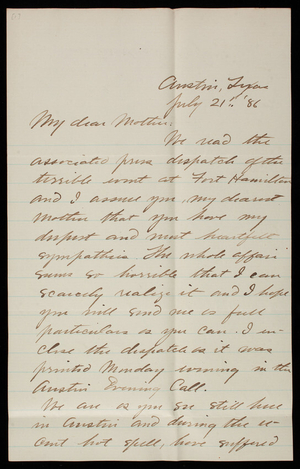 Austin, Texas
July 21st '86
My dear Mother:
We read the
associated press dispatch of the
terrible event at Fort Hamilton
and I assure you, my dearest
mother that you have my
deepest and most heartfelt
sympathies. The whole affair
seems so horrible that I can
scarcely realize it and I hope
you will send me as full
particulars as you can. I en-
close the dispatch as it was
printed Monday evening in the
Austin Evening Call.
We are as you see still here
in Austin and during the re-
cent hot spell, have suffered